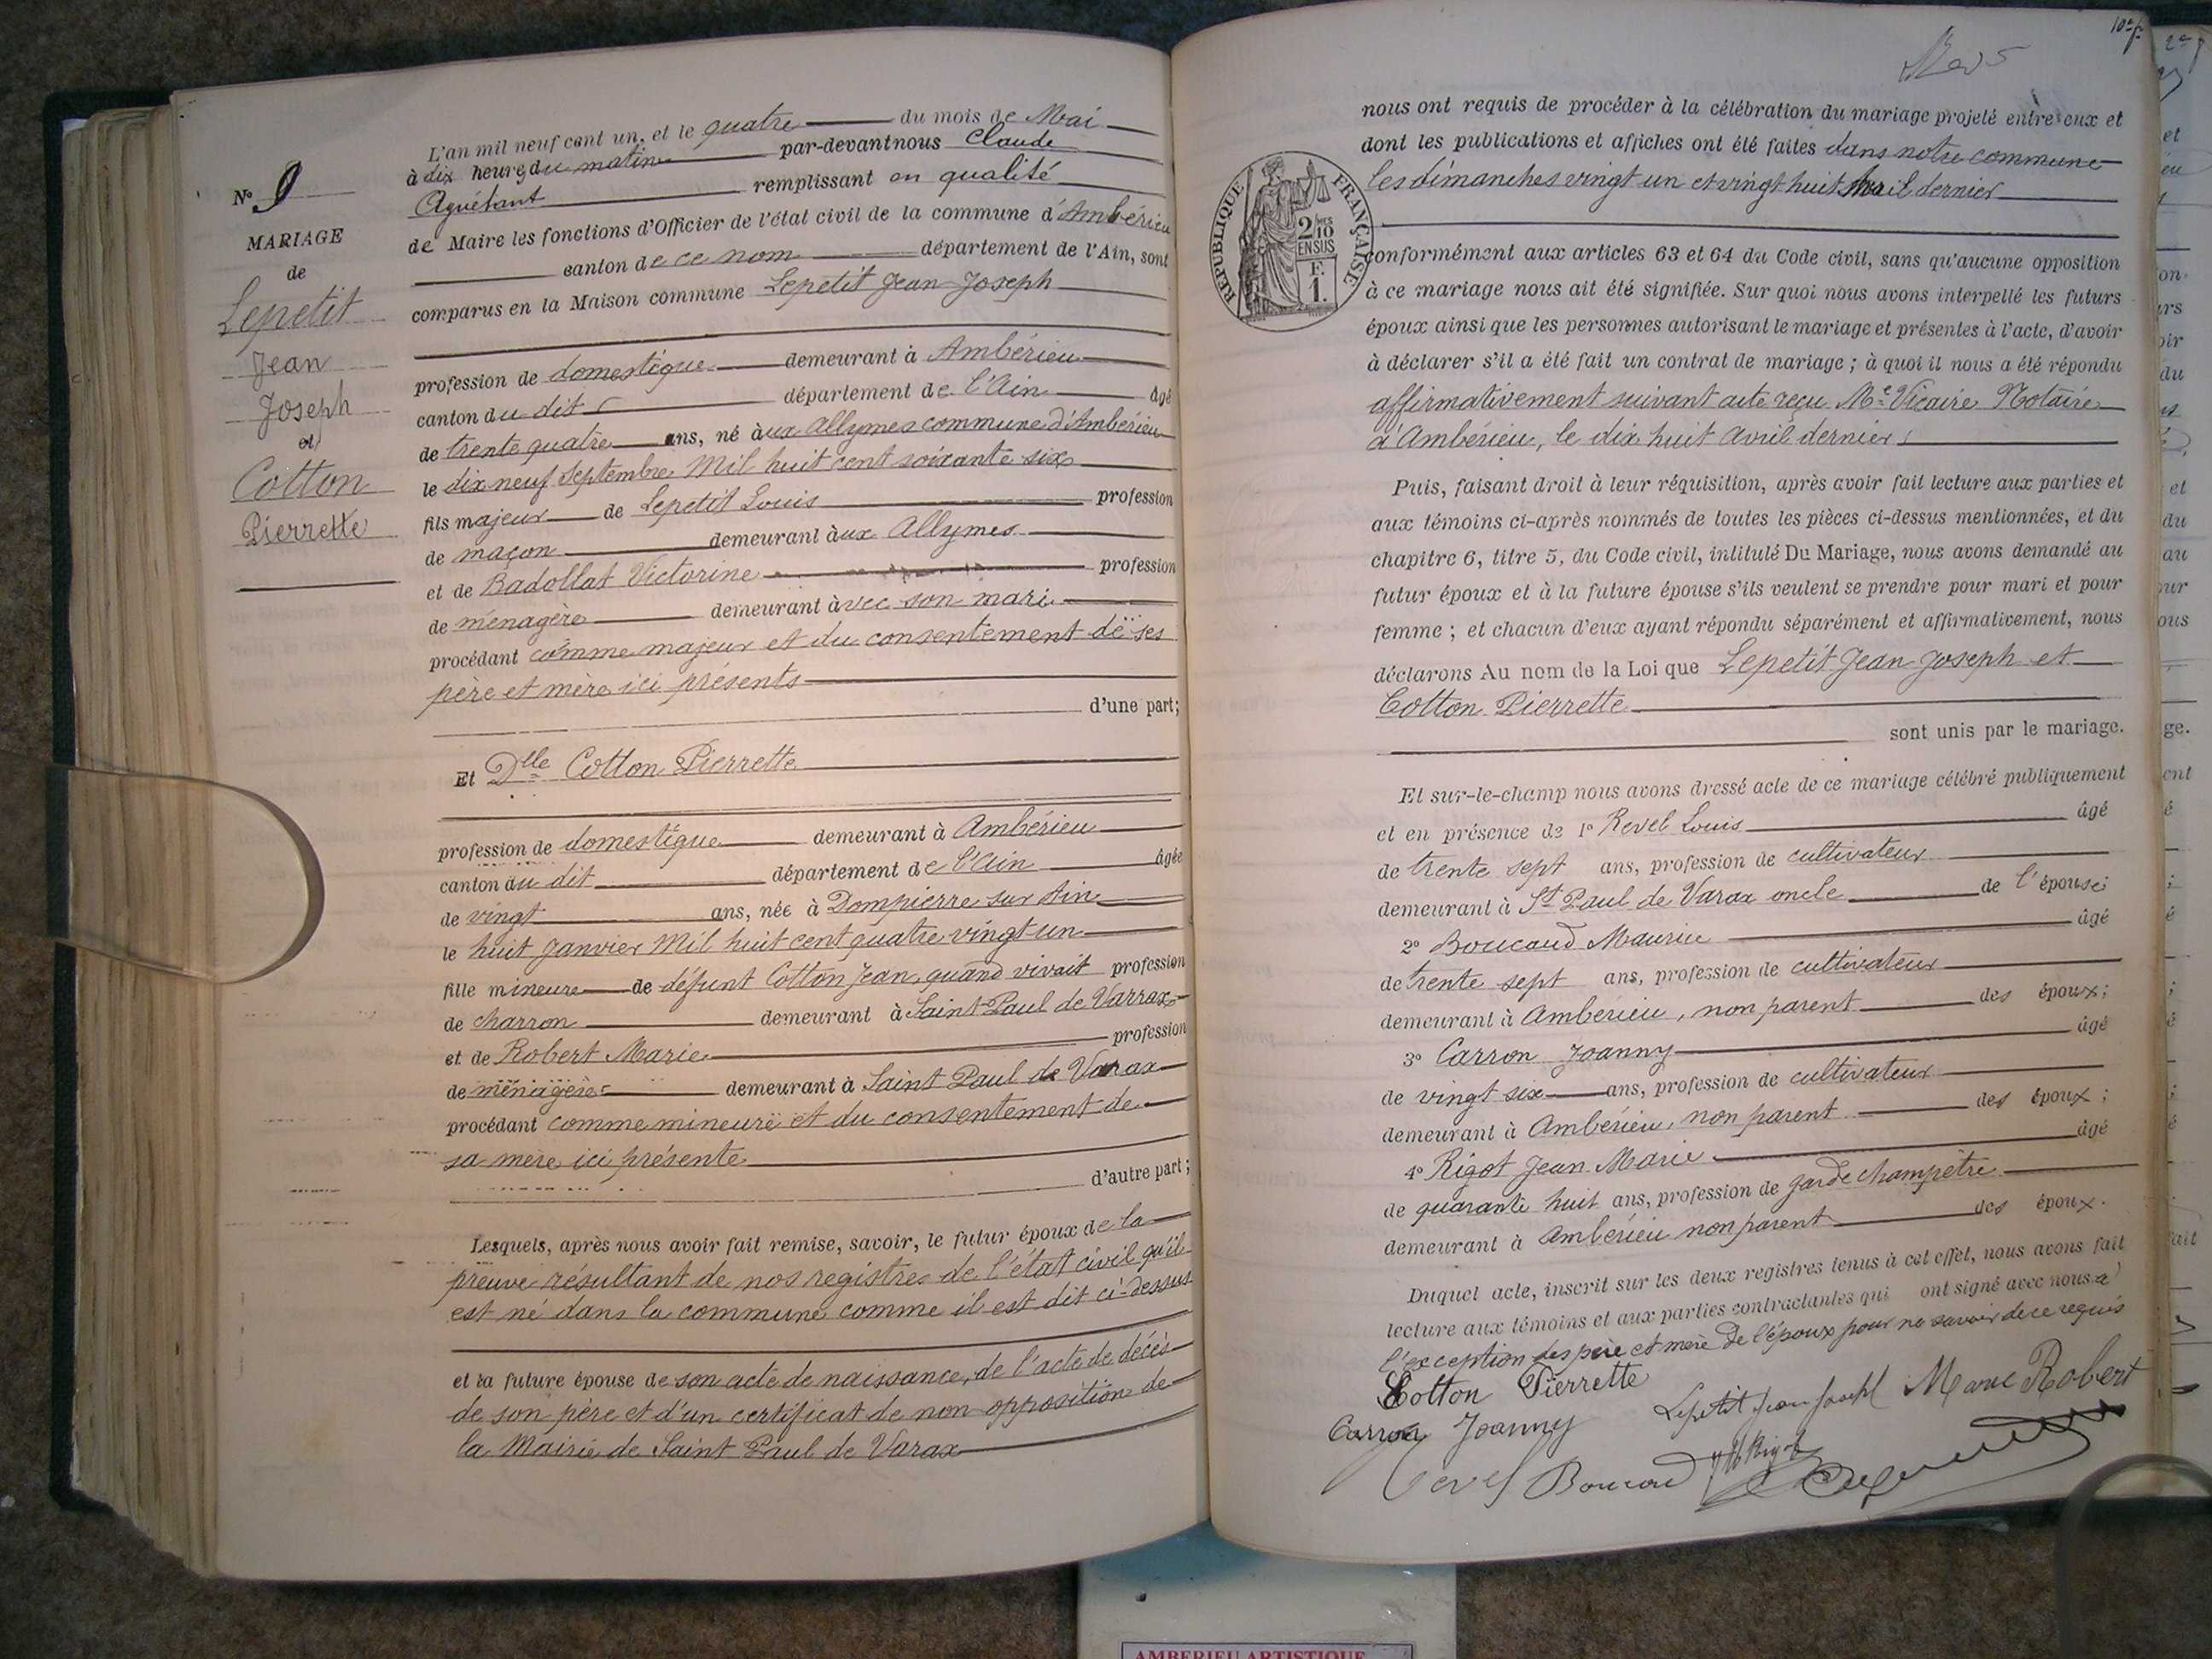 N° 9
MARIAGE
de
Lepetit
Jean
Joseph
et
Cotton
Pierrette
L'an mil neuf cent un, et le quatre du mois de Mai
à dix heures du matin par-devant nous Claude
Aguétant remplissant en qualité
de Maire les fonctions d'Officier de l'état civil de la commune d'Ambérieu
canton de ce nom département de l'Ain, sont
comparus en la Maison commune Lepetit Jean Joseph
profession de domestique demeurant à Ambérieu
canton du dit département de l'Ain âgé
de trente quatre ans, né aux Allymes commune d'Ambérieu
le dix neuf Septembre Mil huit cent soixante six
fils majeur de Lepetit Louis profession
de maçon demeurant aux Allymes
et de Badollat Victorine profession
de ménagère demeurant avec son mari
procédant comme majeur et du consentement de ses
père et mère ici présents
d'une part;
Et Dlle Cotton Pierrette
profession de domestique demeurant à Ambérieu
canton du dit département de l'Ain âgée
de vingt ans, née à Dompierre sur Ain
le huit Janvier Mil huit cent quatre vingt un
fille mineure de défunt Cotton Jean, quand vivait profession
de charron demeurant à Saint Paul de Varrax
et de Robert Marie profession
de ménagère demeurant à Saint Paul de Varax
procédant comme mineure et du consentement de
sa mère ici présente
d'autre part;
Lesquels, après nous avoir fait remise, savoir, le futur époux de la
preuve résultant de nos registres de l'état civil qu'il
est né dans la commune comme il est dit ci-dessus
et la future épouse de son acte de naissance, de l'acte de décès
de son père et d'un certificat de non opposition de
la Mairie de Saint Paul de Varax
nous ont requis de procéder à la célébration du mariage projeté entre eux et
dont les publications et affiches ont été faites dans notre commune
les dimanches vingt un et vingt huit Avril dernier
RÉPUBLIQUE FRANÇAISE
2/10
EN SUS
F.
1.
conformément aux articles 63 et 64 du Code civil, sans qu'aucune opposition
à ce mariage nous ait été signifiée. Sur quoi nous avons interpellé les futurs
époux ainsi que les personnes autorisant le mariage et présentes à l'acte, d'avoir
à déclarer s'il a été fait un contrat de mariage ; à quoi il nous a été répondu
affirmativement suivant acte reçu Me Vicaire Notaire
à Ambérieu, le dix huit avril dernier
Puis, faisant droit à leur réquisition, après avoir fait lecture aux parties et
aux témoins ci-après nommés de toutes les pièces ci-dessus mentionnées, et du
chapitre 6, titre 5, du Code civil, intitulé Du Mariage, nous avons demandé au
futur époux et à la future épouse s'ils veulent se prendre pour mari et pour
femme ; et chacun d'eux ayant répondu séparément et affirmativement, nous
déclarons Au nom de la Loi que Lepetit Jean Joseph et
Cotton Pierrette
sont unis par le mariage.
Et sur-le-champ nous avons dressé acte de ce mariage célébré publiquement
et en présence de 1° Revel Louis âgé
de trente sept ans, profession de cultivateur
demeurant à St Paul de Varax oncle de l'épouse;
2° Boucaud Maurice âgé
de trente sept ans, profession de cultivateur
demeurant à Ambérieu, non parent des époux;
3° Carron Joanny âgé
de vingt six ans, profession de cultivateur
demeurant à Ambérieu, non parent des époux;
4° Rigot Jean Marie âgé
de quarante huit ans, profession de garde champêtre
demeurant à Ambérieu non parent des époux.
Duquel acte, inscrit sur les deux registres tenus à cet effet, nous avons fait
lecture aux témoins et aux parties contractantes qui ont signé avec nous à
l'exception des père et mère de l'époux pour ne savoir de ce requis
Cotton Pierrette
Lepetit Jean Joseph Marie Robert
Carron Joanny
Revel Boucaud JM Rigot
AMBERIEU ARTISTIQUE